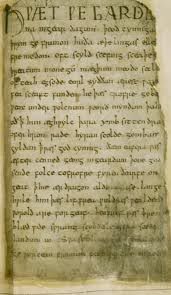 HWÆT WE GARDE
na ingear dagum. þeod cyninga
þrym ge frunon huða æþelingas elle
fremedon. oft scyld scefing sceaþe
þreatum monegū mægþum meodo setla
of teah egsode eorl syððan ærest wearð
fea sceaft funden he þæs frofre geba
weox under wolcnum weorð myndum þah
oð þ him æghwylc þara ymb sittendra
ofer hron rade hyran scolde gomban
gyldan þ wæs god cyning. ðæm eafera wæs
æfter cenned geong ingeardum þone god
sende folce tofrofre fyren ðearfe on
geat þ hie ær drugon aldor ase. lange
hwile him þæs lif frea wuldres wealdend
worold are for geaf. beowulf wæs breme
blæd wide sprang scyldes eafera scede
landum in.